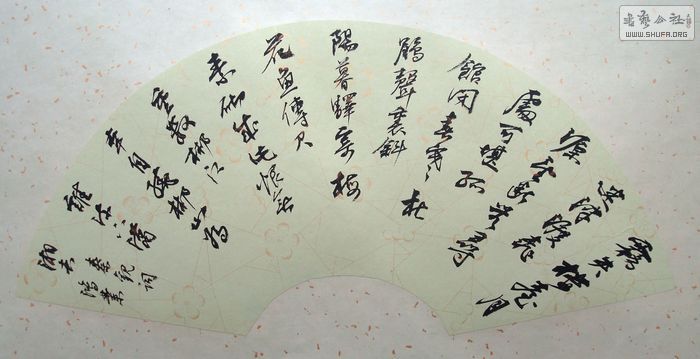 霧失樓臺月
迷津渡桃
源望斷無尋
處可堪孤
館閉春寒杜
鵑聲裏斜
陽暮驛寄梅
花魚傳尺
素砌成此恨無
重數郴江
幸自繞郴山為
誰流下瀟
湘去
秦觀詞
書藝公社
WWW.SHUFA.ORG